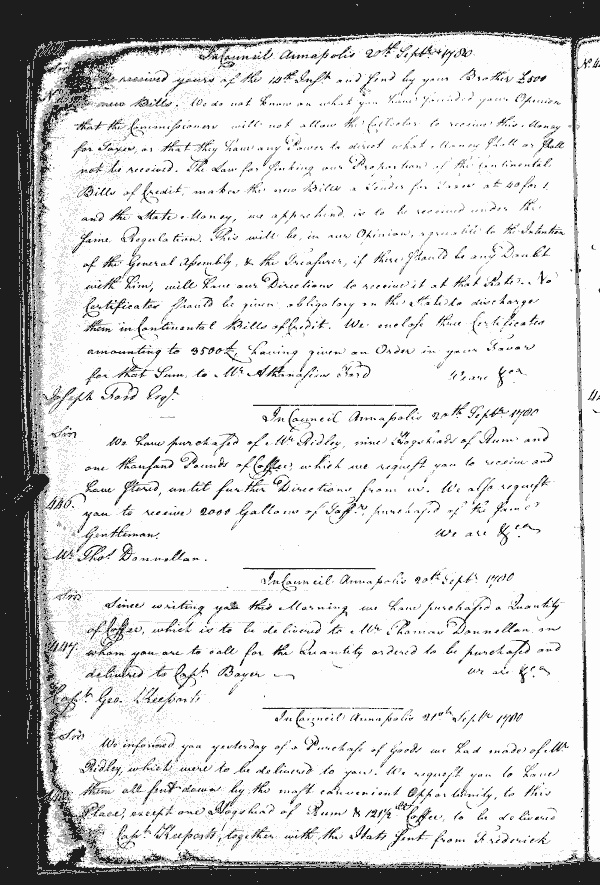 In Council Annapolis 20th Septr 1780
Sir
We received yours of the 14th Inst and send by your Brother £500
new Bills. We do not know on what you have founded your Opinion
that the Commissioners will not allow the Collector to receive this Money
for Taxes, or that they have any Power to direct what Money shall or shall
not be received. The Law for sinking our Proportion of the Continental
Bills of Credit, makes the new Bills a Tender for Taxes at 40 for 1,
and the State Money, we apprehend is to be received under the
same Regulation. This will be, in our Opinion, agreeable to the Intention
of the General Assembly, & the Treasurer, if there should be any Doubt
with him, will have our Directions to receive it at that Rate. No
Certificates should be given obligatory on the State to discharge
them in Continental Bills of Credit. We enclose three Certificates
amounting to 3500£, having given an Order in your Favor
for that Sum, to Mr Athanasius Ford
We are &ca
Joseph Ford Esqr.
In Council Annapolis 20th Septr 1780
Sir
We have purchased of Mr Ridley, nine Hogsheads of Rum and
one thousand Pounds of Coffee, which we request you to receive and
have stored, until further Directions from us. We also request
446.
you to receive 2000 Gallons of purchased of the same
Gentleman.
We are &ca
Mr Thos Donnellan.
In Council Annapolis 20th Septr 1780
Sir
Since writing you this Morning we have purchased a Quantity
of Coffee, which is to be delivered to Mr Thomas Donnellan, on
447.
whom you are to call for the Quantity ordered to be purchased and
delivered to Capt Boyer
We are &ca
Capt Geo. Keeports
In Council Annapolis 21st Septr 1780
Sir
We informed you yesterday of a Purchase of Goods we had made of Mr
Ridley, which were to be delivered to you. We request you to have
them all sent down by the most convenient Opportunity, to this
Place, except one Hogshead of Rum & 121½ Coffee, to be delivered
Capt Keeports, together with the Hats sent from Frederick
No 4